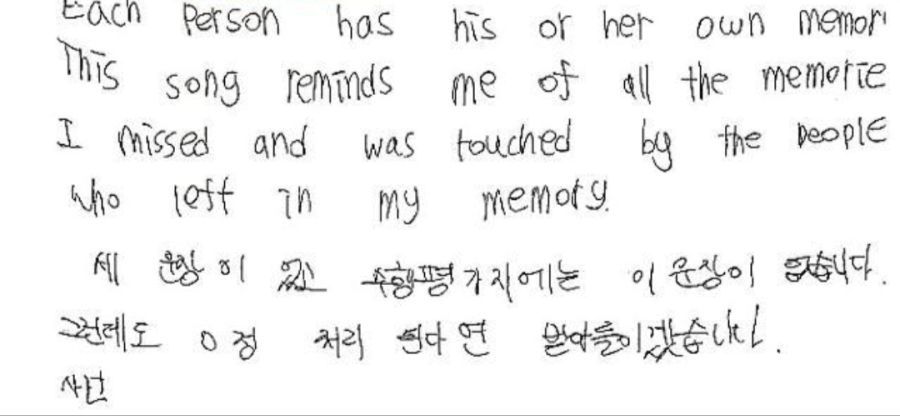 Each Person has his or her own memor
This song reminds me of all the memorie
I missed and was touched by the people
who left in my memory.
세 문장이 있고 수행평가지에는 이 문장이 없습니다.
그런데도 0점 처리 된다면 받아들이겠습니다.
사인